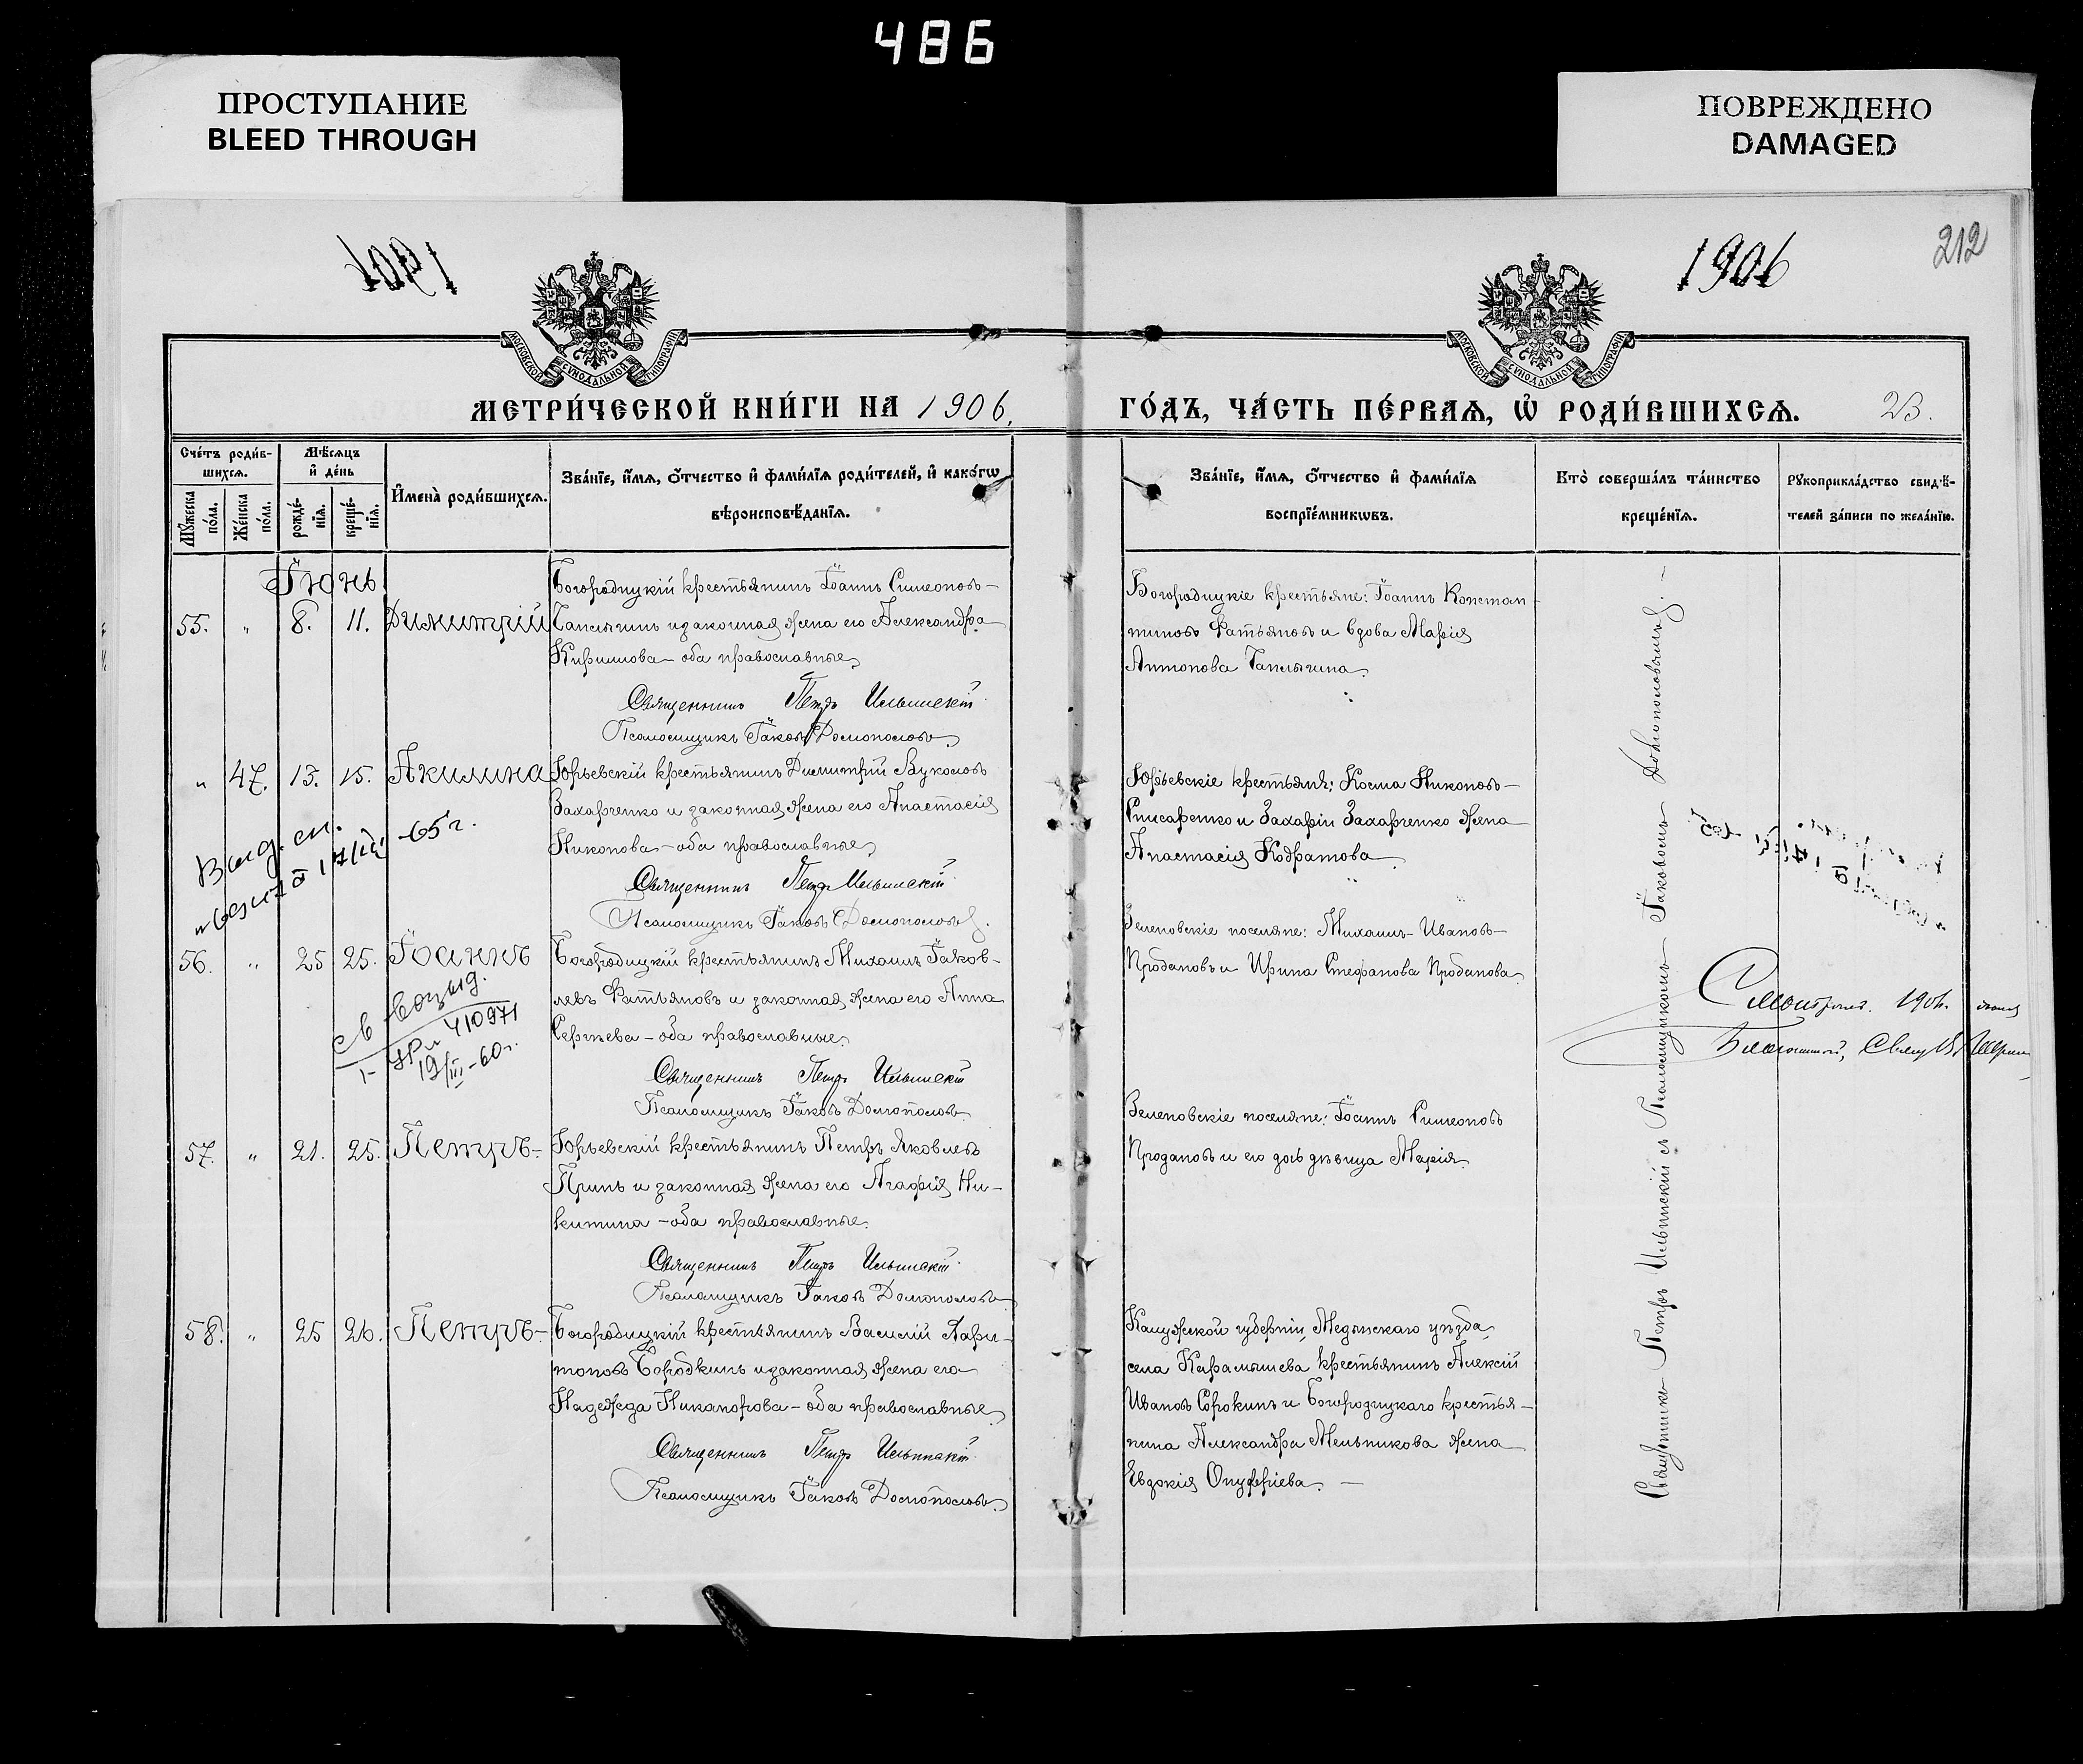 486
ПРОСТУПАНИЕ
BLEED THROUGH
ПОВРЕЖДЕНО
DAMAGED
1906
212
МОСКОВСКОЙ СѴНОДАЛЬНОЙ ТИПОГРАФІИ
МОСКОВСКОЙ СѴНОДАЛЬНОЙ ТИПОГРАФІИ
МЕТРИ́ЧЕСКОЙ КНИ́ГИ НА 1906.
ГО́ДЪ, ЧА́СТЬ ПЕ́РВАѦ, Ѽ РОДИ́ВШИХСѦ. 23.
Сче́тъ роди́в-
шихсѧ.
Мꙋ́жеска по́ла.
Же́нска по́ла.
Мѣ́сѧцъ
и҆ де́нь
рожде́-
нїѧ.
креще́-
нїѧ.
И҆мена̀ роди́вшихсѧ.
Зва́нїе, и҆́мѧ, ѻ҆́тчество и҆ фами́лїѧ роди́телей, и҆ како́гѡ
вѣроисповѣ́данїѧ.
Зва́нїе, и҆́мѧ, ѻ҆́тчество и҆ фами́лїѧ
воспрїе́мникѡвъ.
Кто̀ соверша́лъ та́инство
креще́нїѧ.
Рꙋкоприкла́дство свидѣ́-
телей за́писи по жела́нїю.
Іюнь
55. " 8. 11. Димитрій
Богородицкій крестьянинъ Іоаннъ Симеоновъ
Гаплыгинъ и законная жена его Александра
Кириллова – оба православные.
Священникъ Петръ Ильинскій
Псаломщикъ Іаковъ Домополовъ
Богородицкіе крестьяне: Іоаннъ Констан-
тиновъ Фатьяновъ и вдова Марія
Антонова Гаплыгина.
" 47. 13. 15. Акилина
Юрьевскій крестьянинъ Димитрій Вуколовъ
Захарченко и законная жена его Анастасія
Никонова – оба православные.
Священникъ Петръ Ильинскій
Псаломщикъ Іаковъ Домополовъ
Юрьевскіе крестьяне: Косма Никоновъ
Писаренко и Захаріи Захарченко жена
Анастасія Кодратова.
Выд. сп.
-65 г.
56. " 25 25. Іоаннъ
Богородицкій крестьянинъ Михаилъ Іаков-
левъ Фатьяновъ и законная жена его Анна
Сергѣева – оба православные.
Священникъ Петръ Ильинскій
Псаломщикъ Іаковъ Домополовъ
Зеленовскіе поселяне: Михаилъ Ивановъ
Продановъ и Ирина Стефанова Проданова.
410971
19/III-60 г.
57. " 21. 25. Петръ
Юрьевскій крестьянинъ Петръ Яковлевъ
Принь и законная жена его Агафія Ни-
китина – оба православные.
Священникъ Петръ Ильинскій
Псаломщикъ Іаковъ Домополовъ
Зеленовскіе поселяне: Іоаннъ Симеоновъ
Продановъ и его дочь дѣвица Марія.
58. " 25 26. Петръ
Богородицкій крестьянинъ Василій Хари-
тоновъ Бородкинъ и законная жена его
Надежда Никанорова – оба православные
Священникъ Петръ Ильинскій
Псаломщикъ Іаковъ Домополовъ
Калужской губерніи, Медынскаго уѣзда
села Карамышева крестьянинъ Алексій
Ивановъ Сорокинъ и Богородицкаго крестья-
нина Александра Мельникова жена
Евдокія Онуфріева.
Священникъ Петръ Ильинскій съ Псаломщикомъ Іаковомъ Домополовымъ.
Смотрѣлъ. 1906.